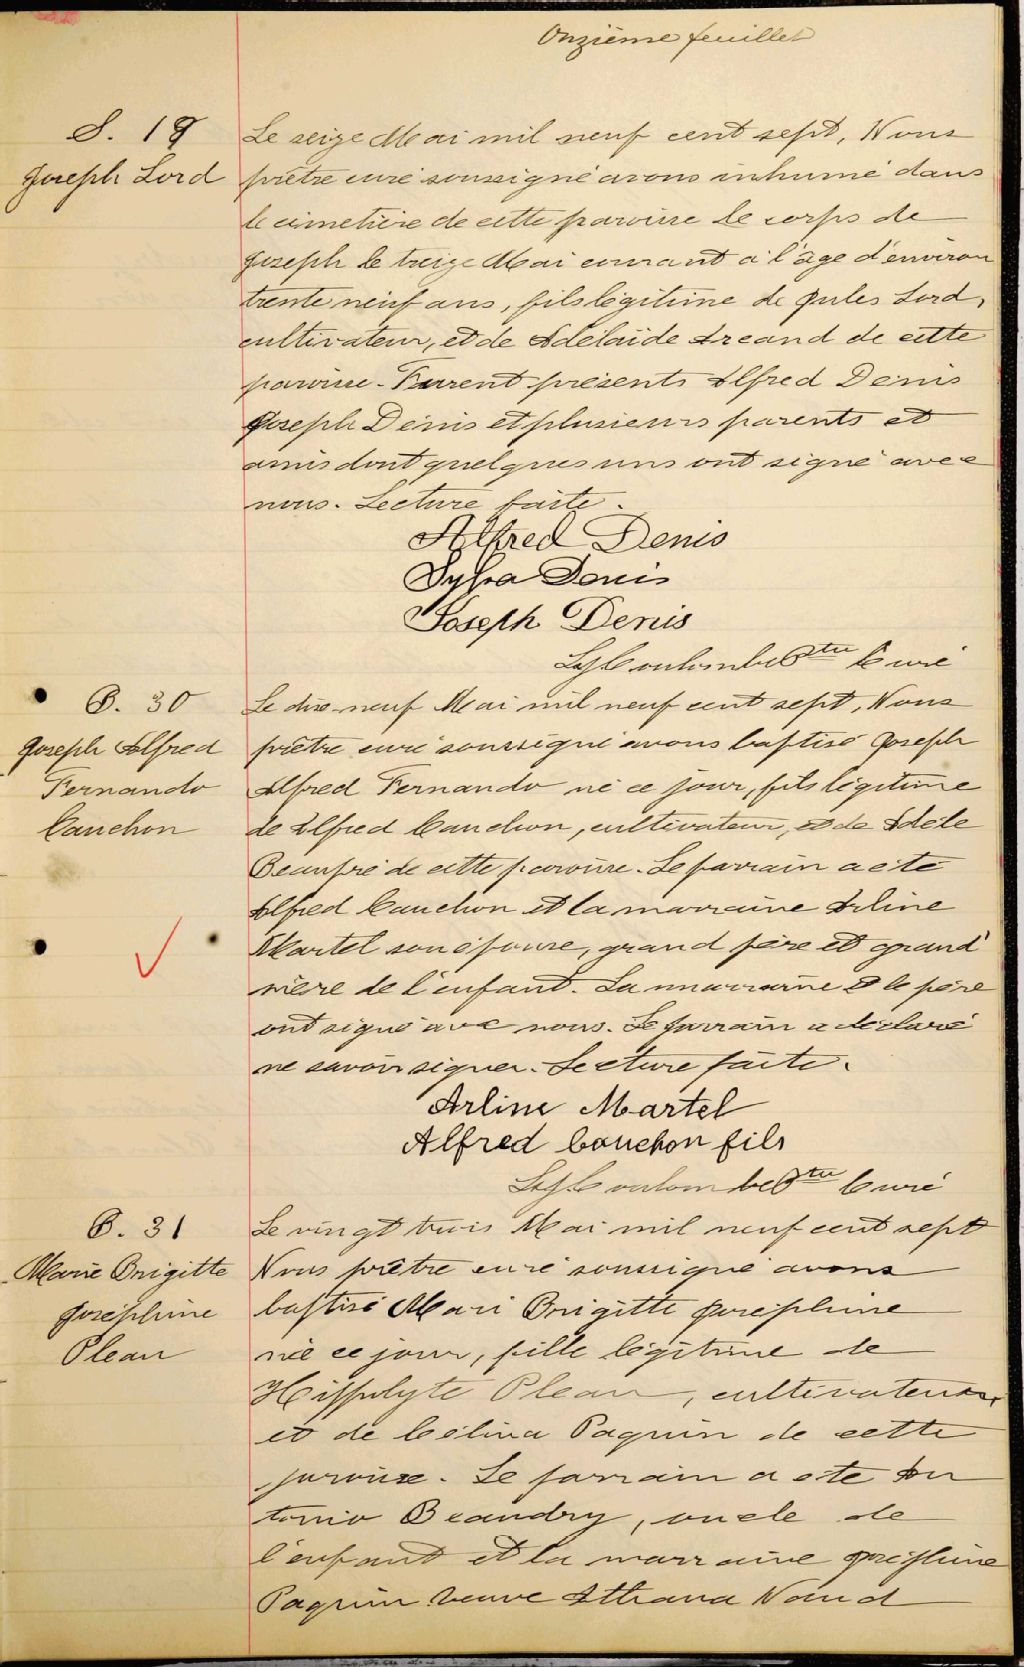 Onzième feuillet
S. 19
Joseph Lord
Le seize Mai mil neuf cent sept, Nous
prêtre curé soussigné avons inhumé dans
le cimetière de cette paroisse le corps de
Joseph le treize Mai courant à l'âge d'environ
trente neuf ans, fils légitime de Jules Lord,
cultivateur, et de Adélaïde Areand de cette
paroisse. Furent présents Alfred Denis
Joseph Denis et plusieurs parents et
amis dont quelques uns ont signé avec
nous. Lecture faite.
Alfred Denis
Sylva Denis
Joseph Denis
Coulombe Ptre Curé
B. 30
Joseph Alfred
Fernando
Cauchon
Le dix-neuf Mai mil neuf cent sept, Nous
prêtre curé soussigné avons baptisé Joseph
Alfred Fernando né ce jour, fils légitime
de Alfred Cauchon, cultivateur, et de Adèle
Beaupré de cette paroisse. Le parrain a été
Alfred Cauchon et la marraine Arline
Martel son épouse, grand père et grand
mère de l'enfant. La marraine et le père
ont signé avec nous. Le parrain a déclaré
ne savoir signer. Lecture faite.
Arline Martel
Alfred Couchon fils
Coulombe Ptre Curé
B. 31
Marie Brigitte
Joséphine
Pleau
Le vingt trois Mai mil neuf cent sept
Nous prêtre curé soussigné avons
baptisé Mari Brigitte Josephine
née ce jour, fille légitime de
Hippolyte Pleau, cultivateur,
et de Célina Paquin de cette
paroisse. Le parrain a été An
tonio Beaudry, oncle de
l'enfant et la marraine Joséphine
Paquin veuve Naud